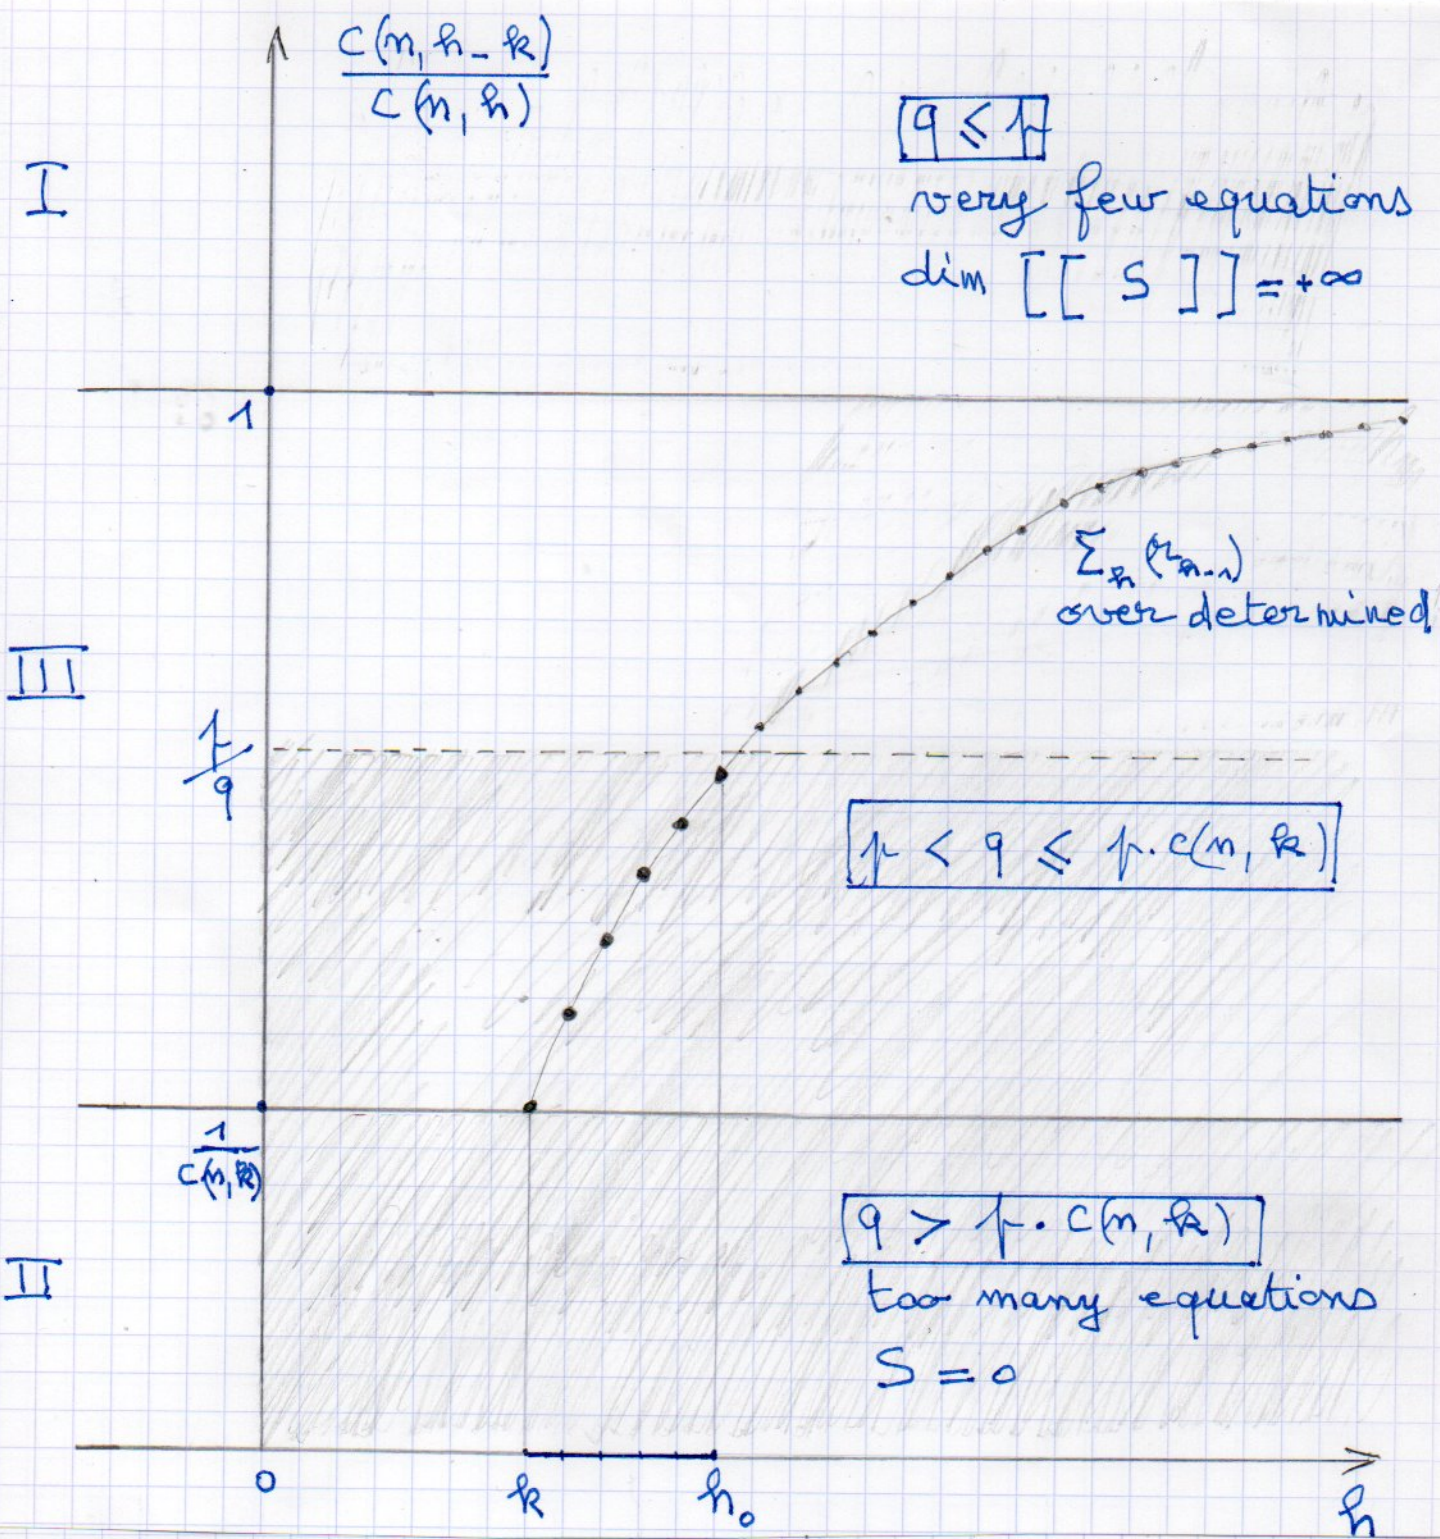 C(n, h-k)
C(n, h)
I
q ≤ p
very few equations
dim [[ S ]] = +∞
1
Σh (rh-1)
over determined
III
p/q
p < q ≤ p.C(n, k)
1
C(n,k)
q > p. C(n, k)
too many equations
S = 0
II
0
k
h0
h